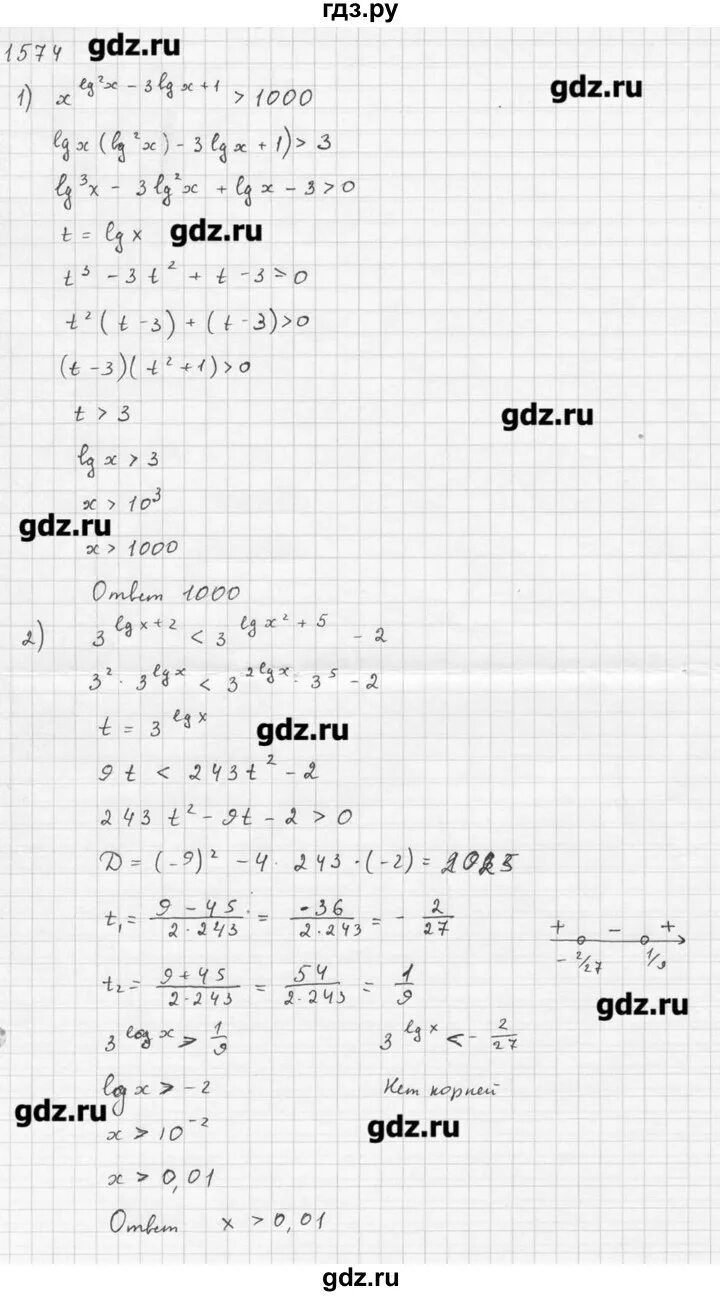 гдз.ру
1574 gdz.ru
1) x^(lg²x - 3lg x + 1) > 1000 gdz.ru
lg x (lg²x) - 3 lg x + 1) > 3
lg³x - 3 lg²x + lg x - 3 > 0
t = lg x gdz.ru
t³ - 3t² + t - 3 > 0
t²(t - 3) + (t - 3) > 0
(t - 3)(t² + 1) > 0
t > 3 gdz.ru
lg x > 3
x > 10³
gdz.ru
x > 1000
Ответ 1000
2) 3^(lg x + 2) < 3^(lg x² + 5) - 2
3² · 3^(lg x) < 3^(2lg x) · 3⁵ - 2
t = 3^(lg x) gdz.ru
9t < 243t² - 2
243 t² - 9t - 2 > 0
D = (-9)² - 4 · 243 · (-2) = 2025
t₁ = (9 - 45)/(2·243) = (-36)/(2·243) = - 2/27
+ - +
- 2/27 1/9
t₂ = (9 + 45)/(2·243) = 54/(2·243) = 1/9 gdz.ru
3^(log x) > 1/9 3^(lg x) < - 2/27
log x > -2 Нет корней
gdz.ru gdz.ru
x > 10⁻²
x > 0,01
Ответ x > 0,01
gdz.ru